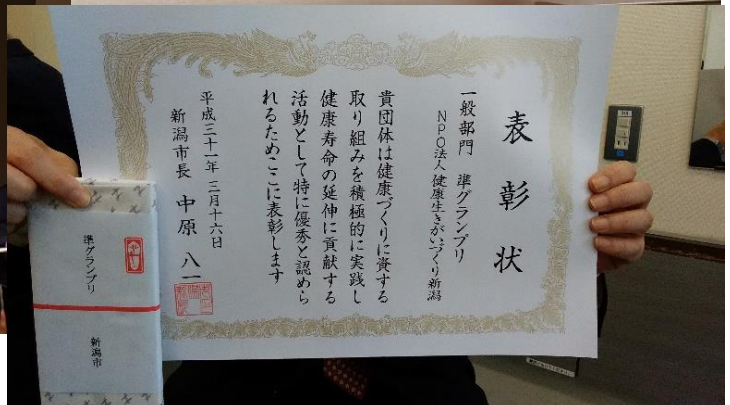 表彰状
一般部門 準グランプリ
NPO法人健康生きがいづくり新潟
貴団体は健康づくりに資する
取り組みを積極的に実践し
健康寿命の延伸に貢献する
活動として特に優秀と認めら
れるためここに表彰します
平成三十一年三月十六日
新潟市長 中原 八一
準グランプリ
新潟市